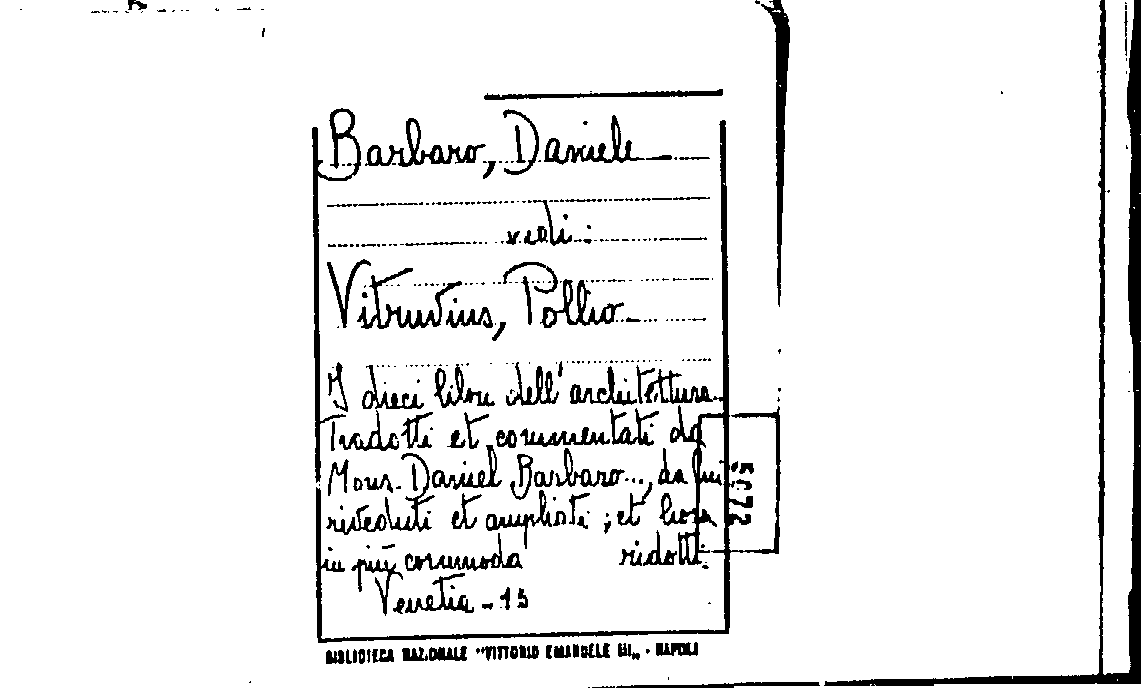 Barbaro, Daniele
vedi:
Vitruvius, Pollio
I dieci libri dell'architettura
Tradotti et commentati da
Mons. Daniel Barbaro..., da lui
riveduti et ampliati; et hora
in più commoda ridotti.
Venetia - 15
5072
BIBLIOTECA NAZIONALE "VITTORIO EMANUELE III" - NAPOLI